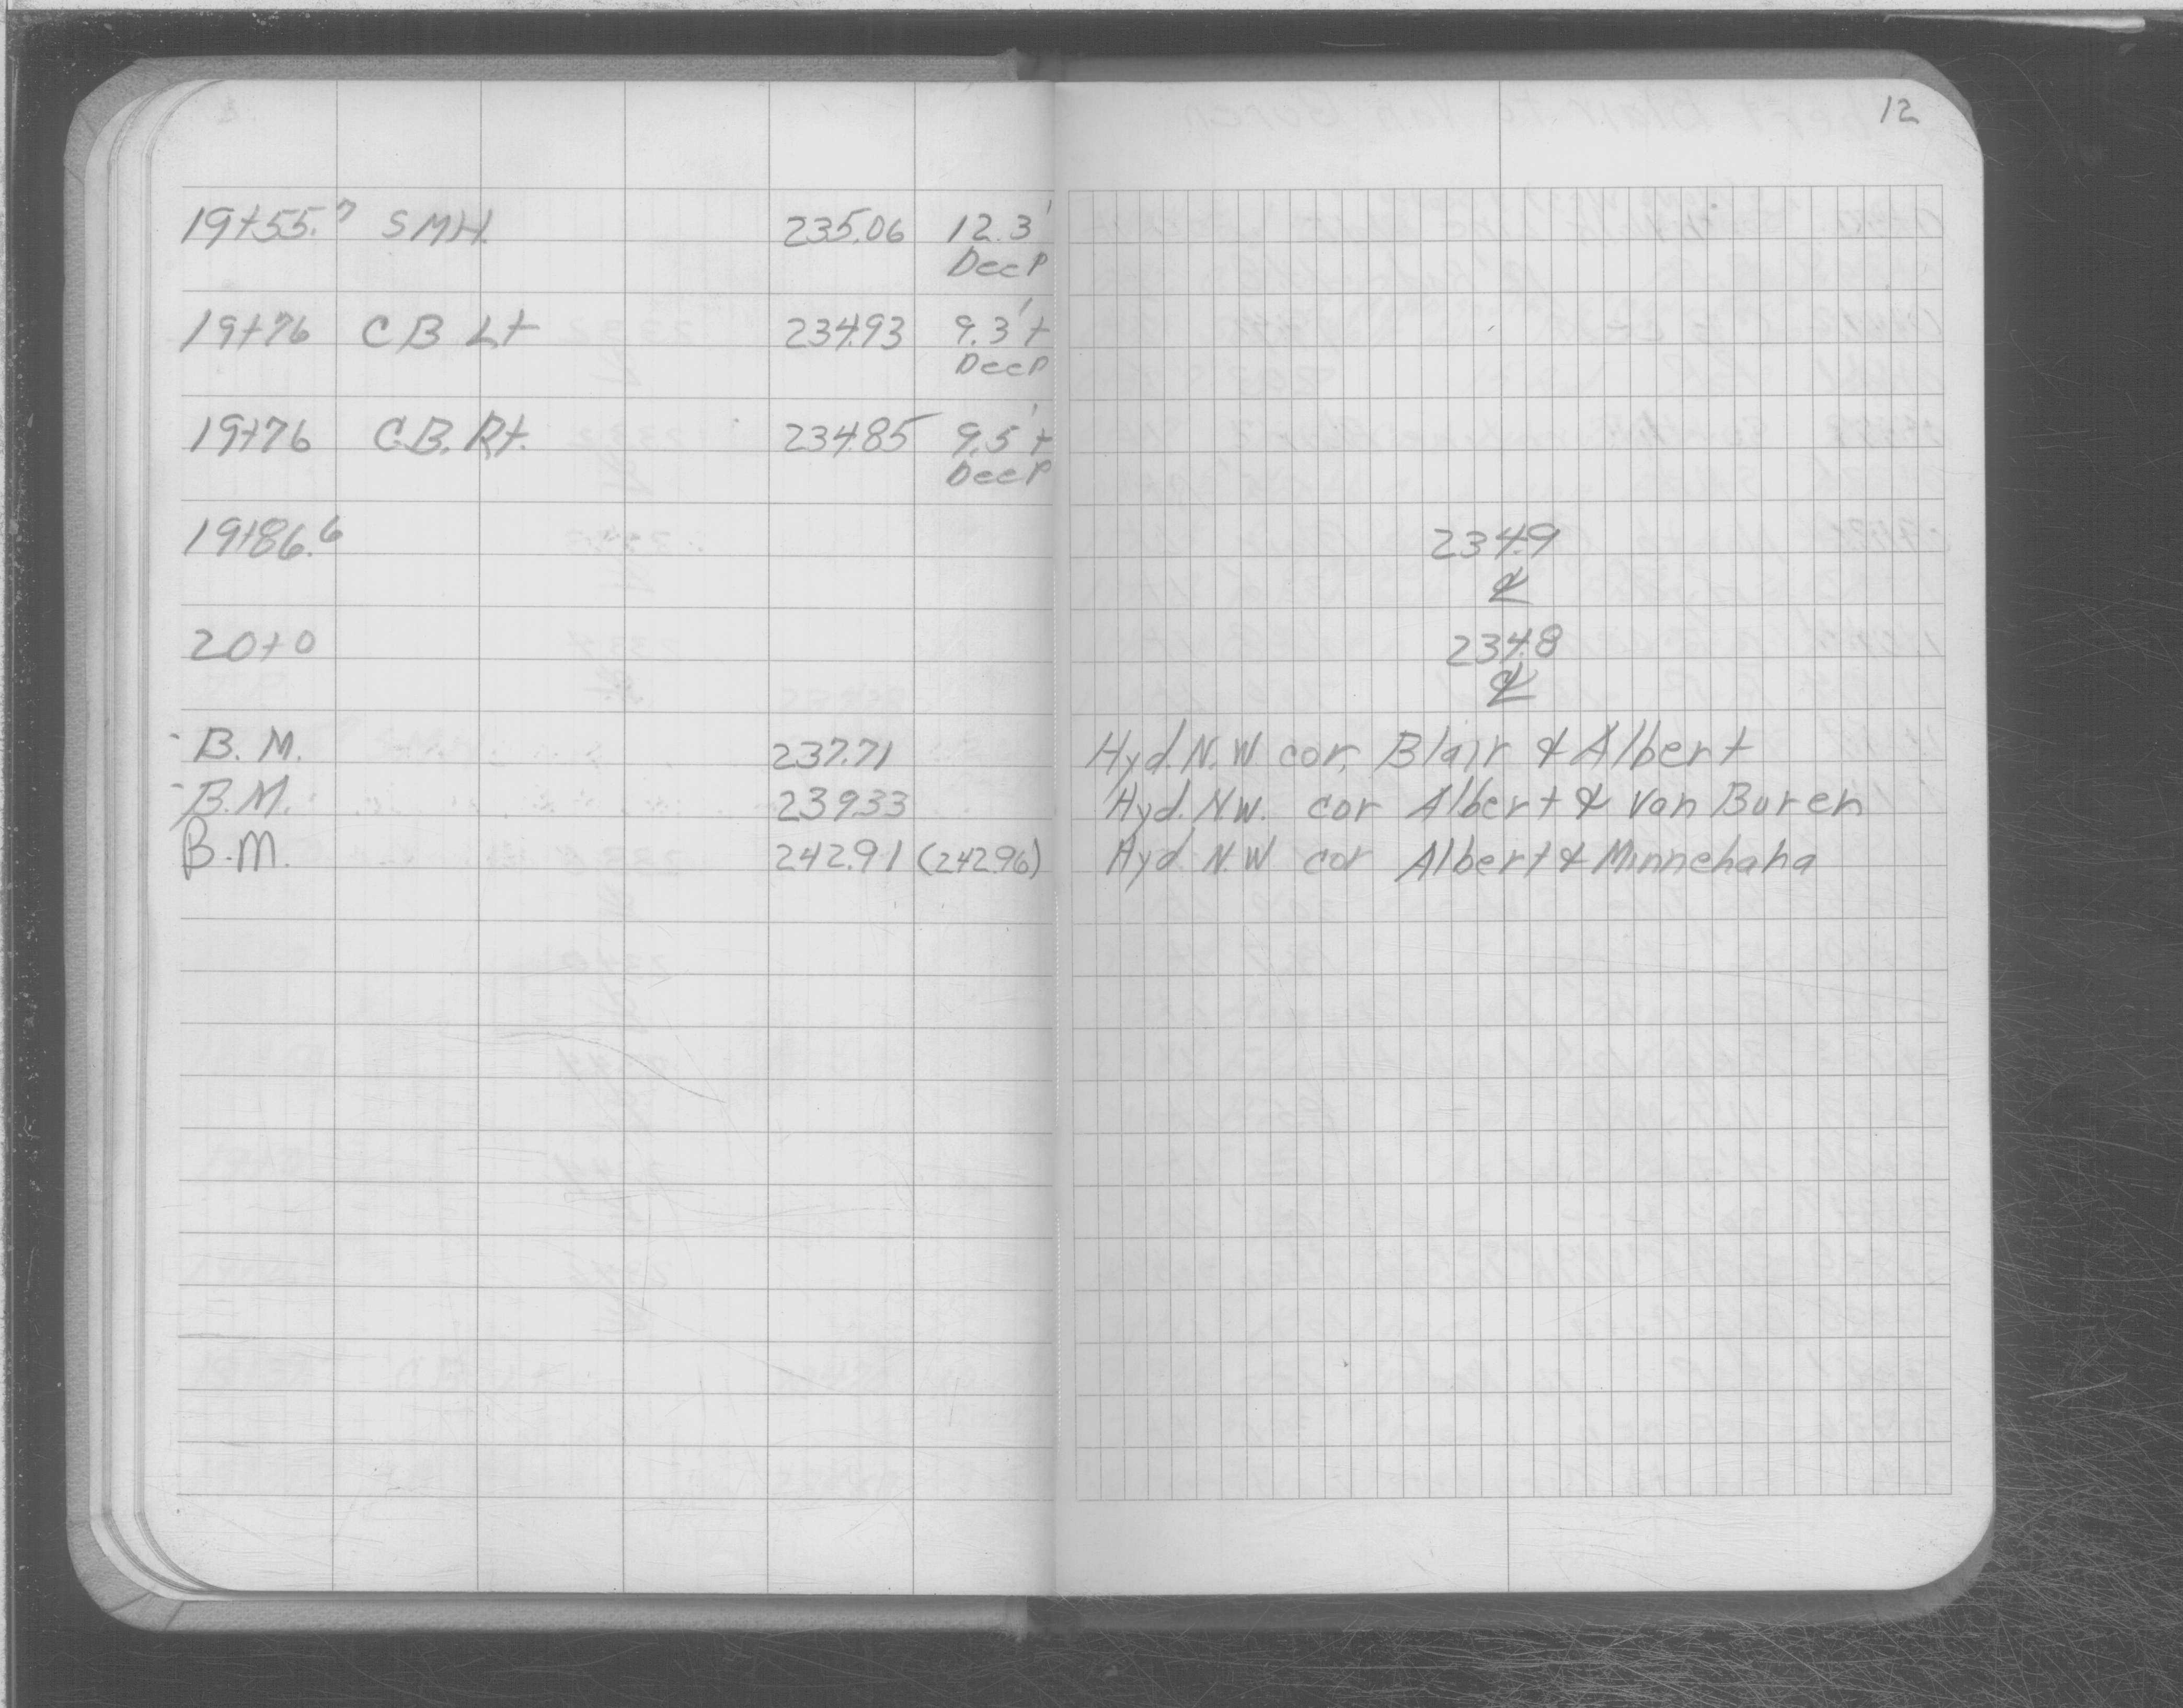 12
19+55.7 SMH. 235.06 12.3'
Deep
19+76 C B Lt 234.93 9.3'+
Deep
19+76 C.B. Rt. 234.85 9.5'+
Deep
19+86.6 234.9
℄
20+0 234.8
℄
B. M. 237.71 Hyd. N.W cor. Blair & Albert
B.M. 239.33 Hyd. N.W. cor Albert & Van Buren
B.M. 242.91 (242.96) Hyd N.W cor Albert & Minnehaha